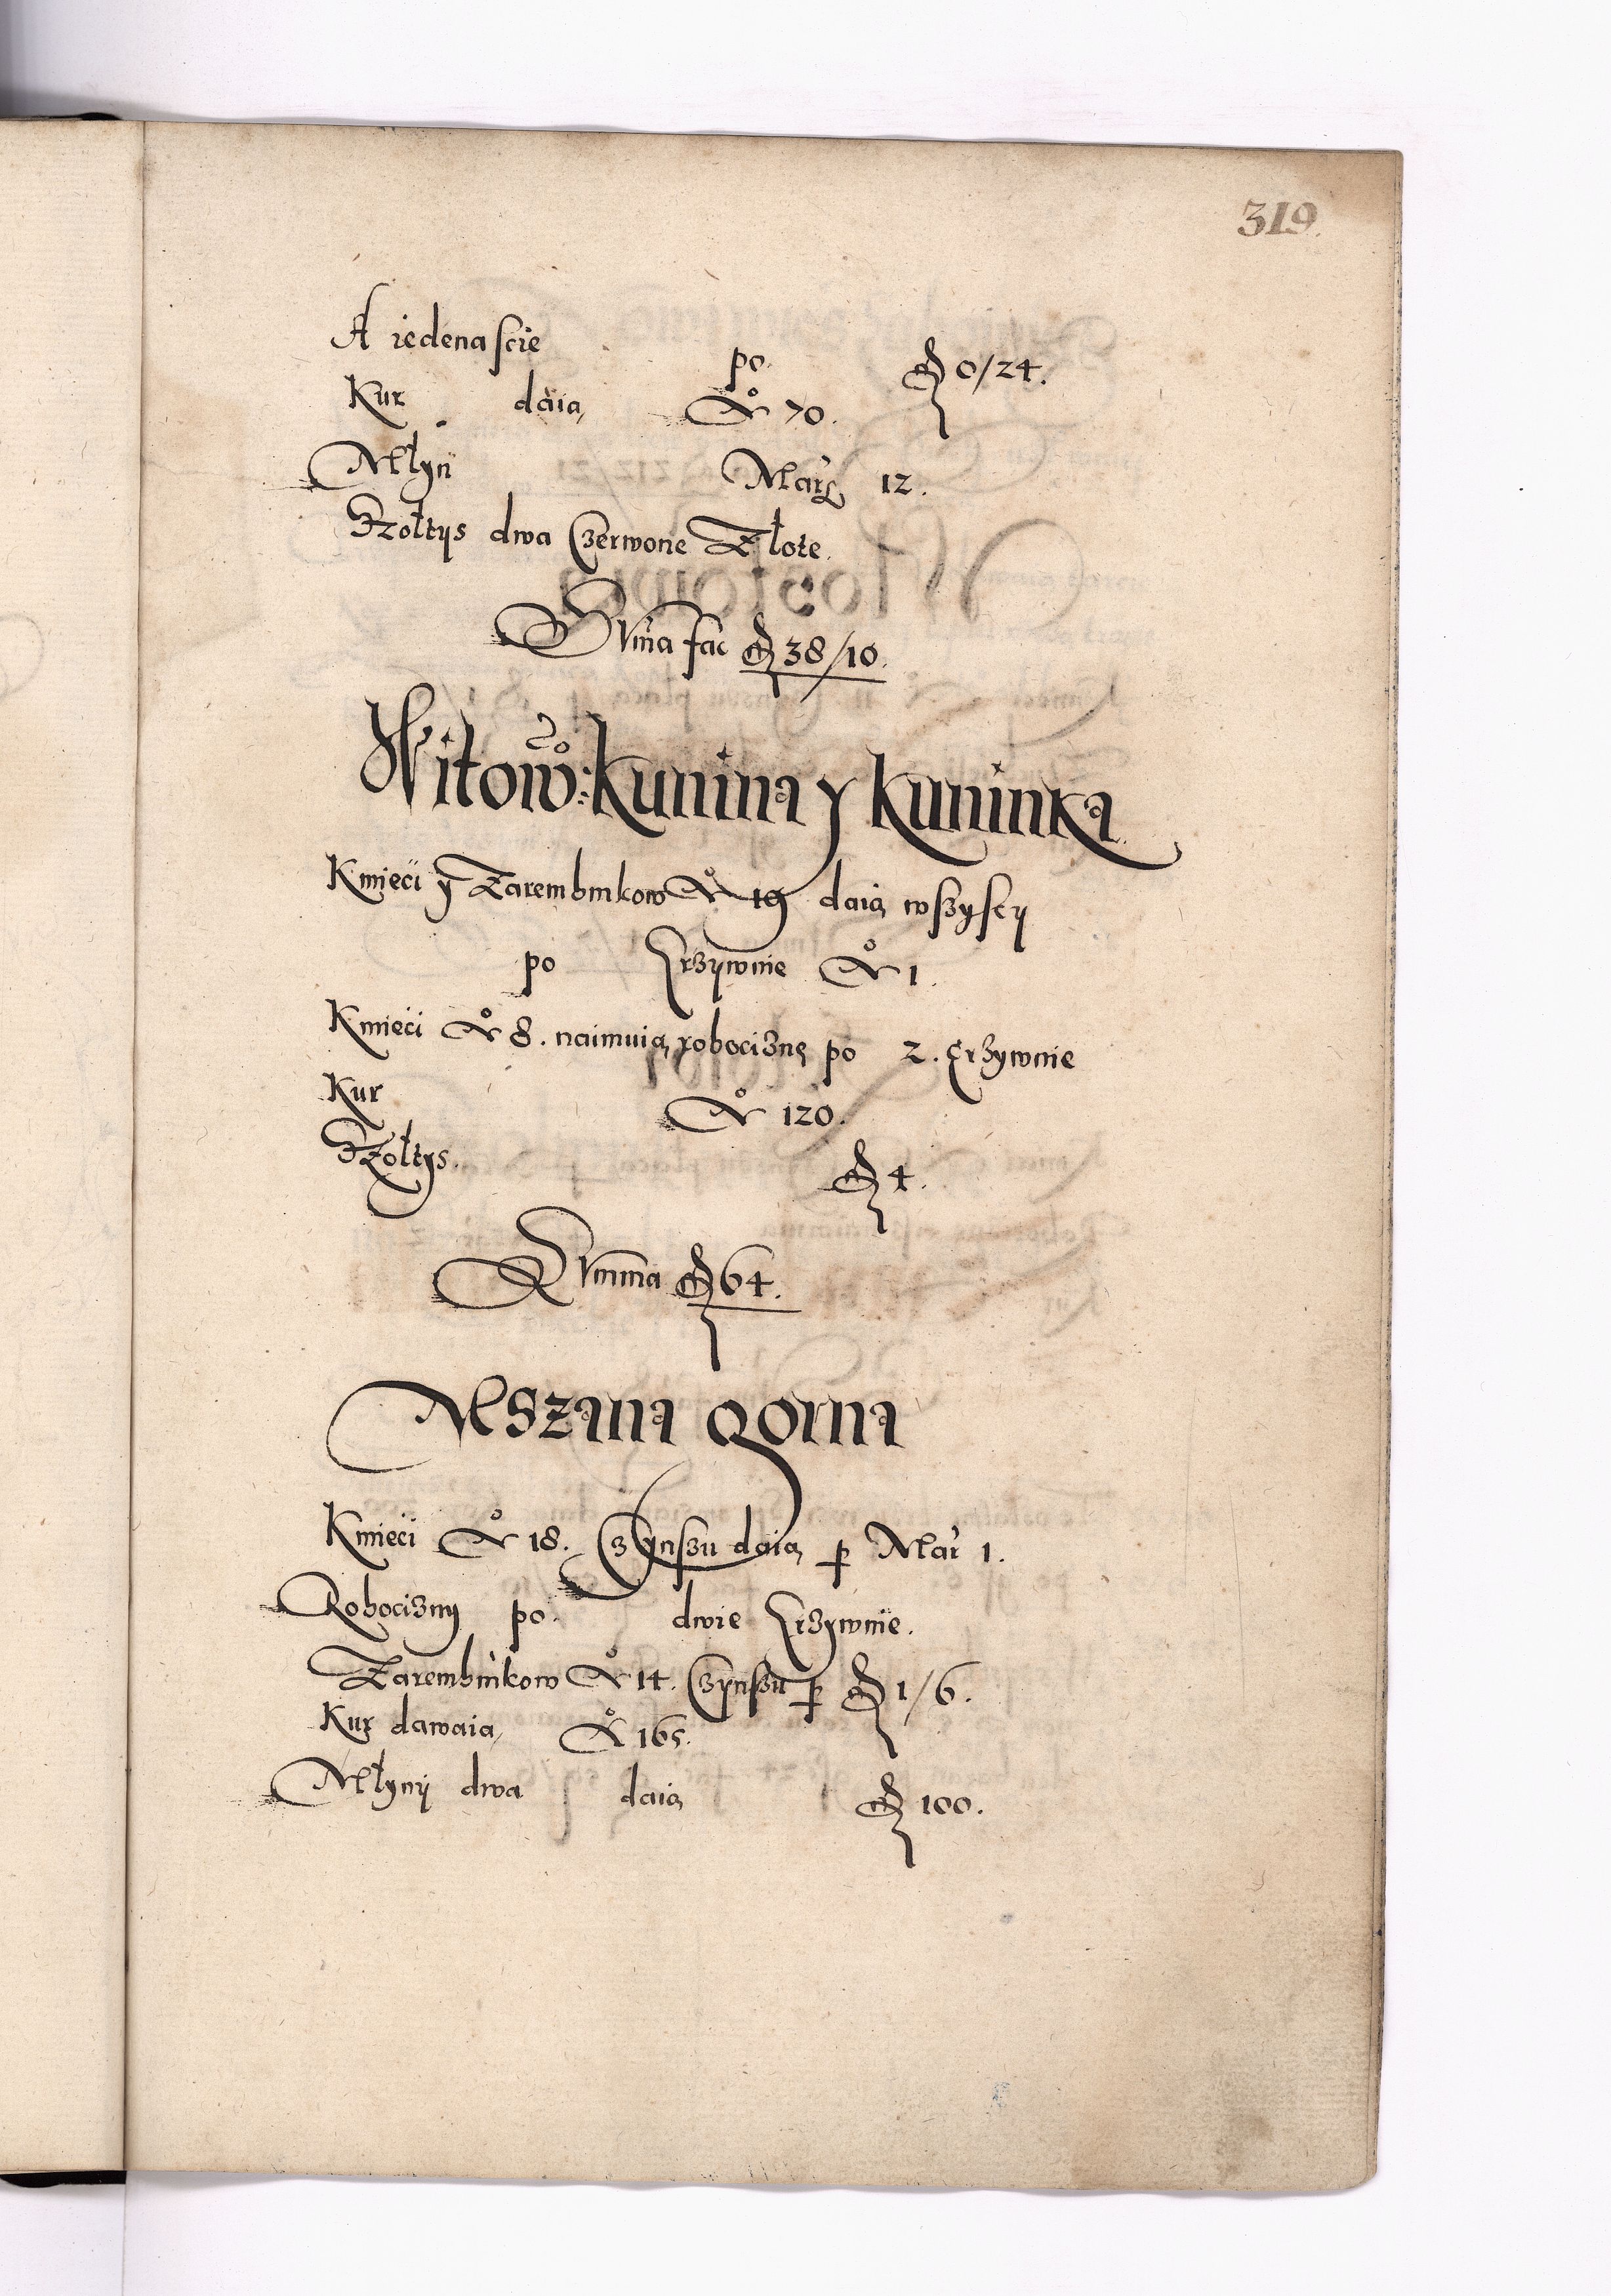 319.
A iedenascie po fl 0/24.
Kur daią No 70.
Młyn Marz 12.
Szołtys dwa Czerwone Złote.
Suma fac fl 38/10.
Witow: kunina y kuninka
Kmieci y Zarembnkow No 19 daią wszyscy
po Grzywnie No 1.
Kmieci No 8. naimuią robociznę po 2. Grzywnie
Kur No 120.
Szołtys. fl 4.
Summa fl 64.
Mszana gorna
Kmieci No 18. Czynszu daią p Mar 1.
Robocizny po. dwie Grzywnie.
Zarembnikow No 14. Czynszu p fl 1/6.
Kur dawaią No 165.
Młyny dwa daią fl 100.